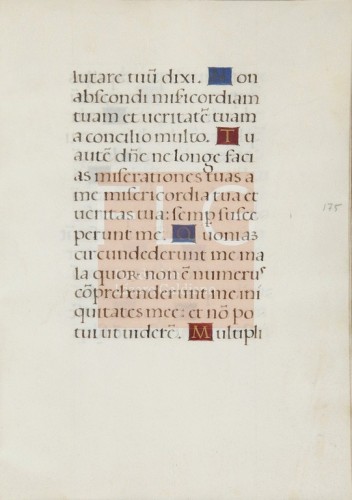 lutare tuū dixi. Non
abscondi misericordiam
tuam et veritatē tuam
a concilio multo. Tu
autē dn̄e ne longe faci
as miserationes tuas a
me misericordia tua et
veritas tua: semp susce
perunt me. Quoniaz
circundederunt me ma
la quorum non ē numerus
cōprehenderunt me ini
quitates mee: et nō po
tui ut viderē. Multipli
175